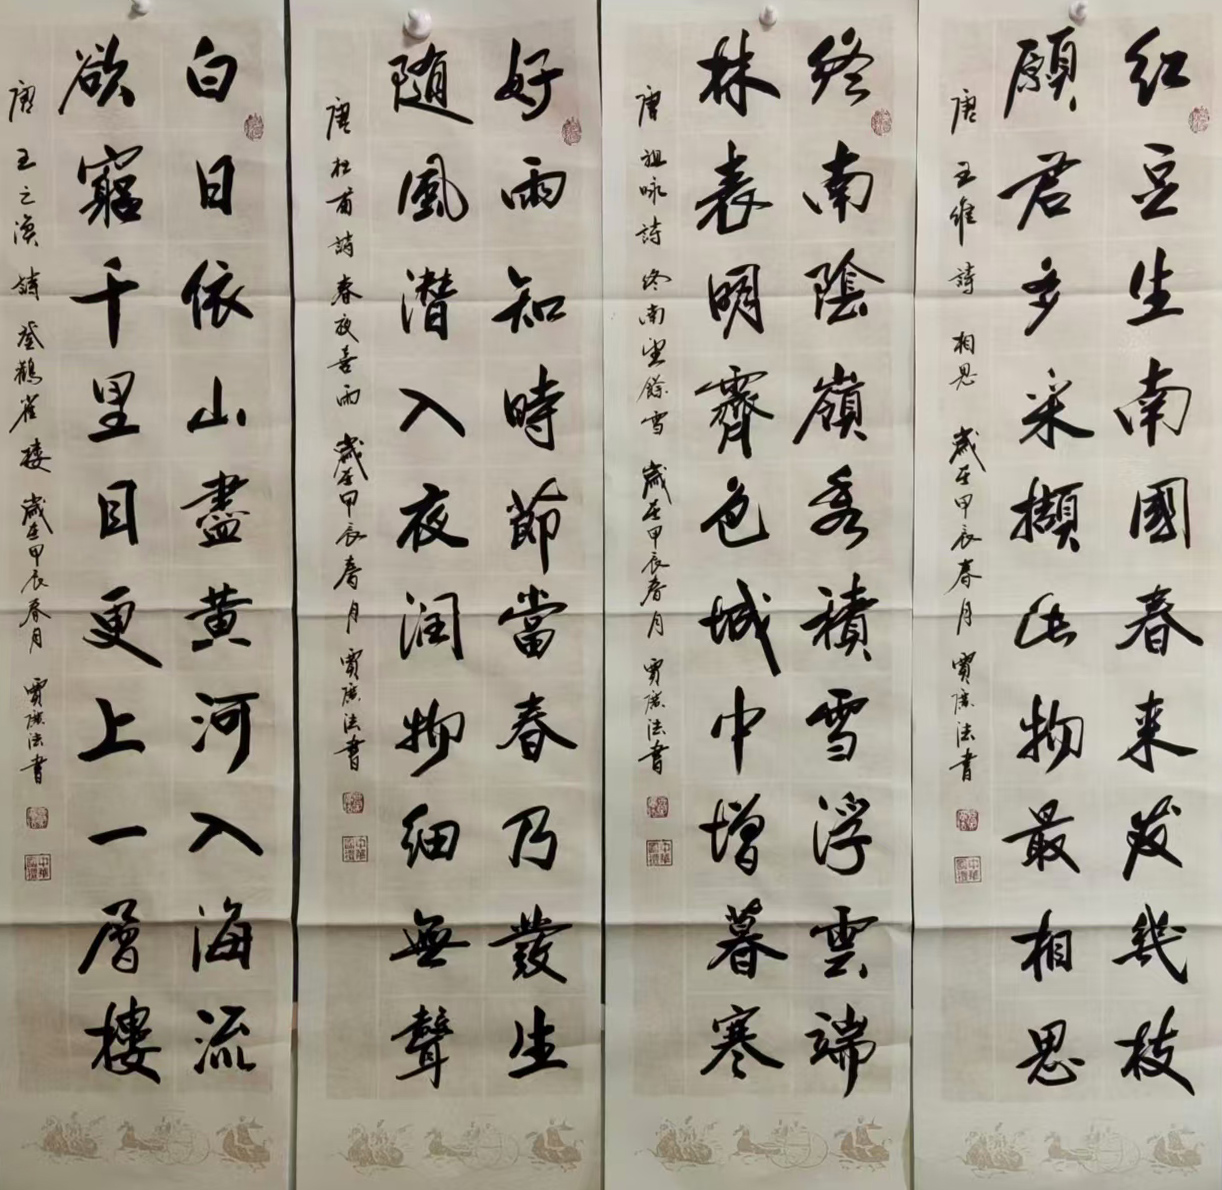 红豆生南國春来发幾枝
願君多采擷此物最相思
唐 王維 詩 相思 歲在甲辰春月 賈廣法書
终南陰嶺秀積雪浮雲端
林表明霽色城中增暮寒
唐 祖咏詩 终南望餘雪 歲在甲辰春月 賈廣法書
好雨知時節當春乃發生
随風潜入夜润物细無聲
唐 杜甫 詩 春夜喜雨 歲在甲辰春月 賈廣法書
白日依山盡黄河入海流
欲窮千里目更上一層樓
唐 王之渙 詩 登鸛雀樓 歲在甲辰春月 賈廣法書